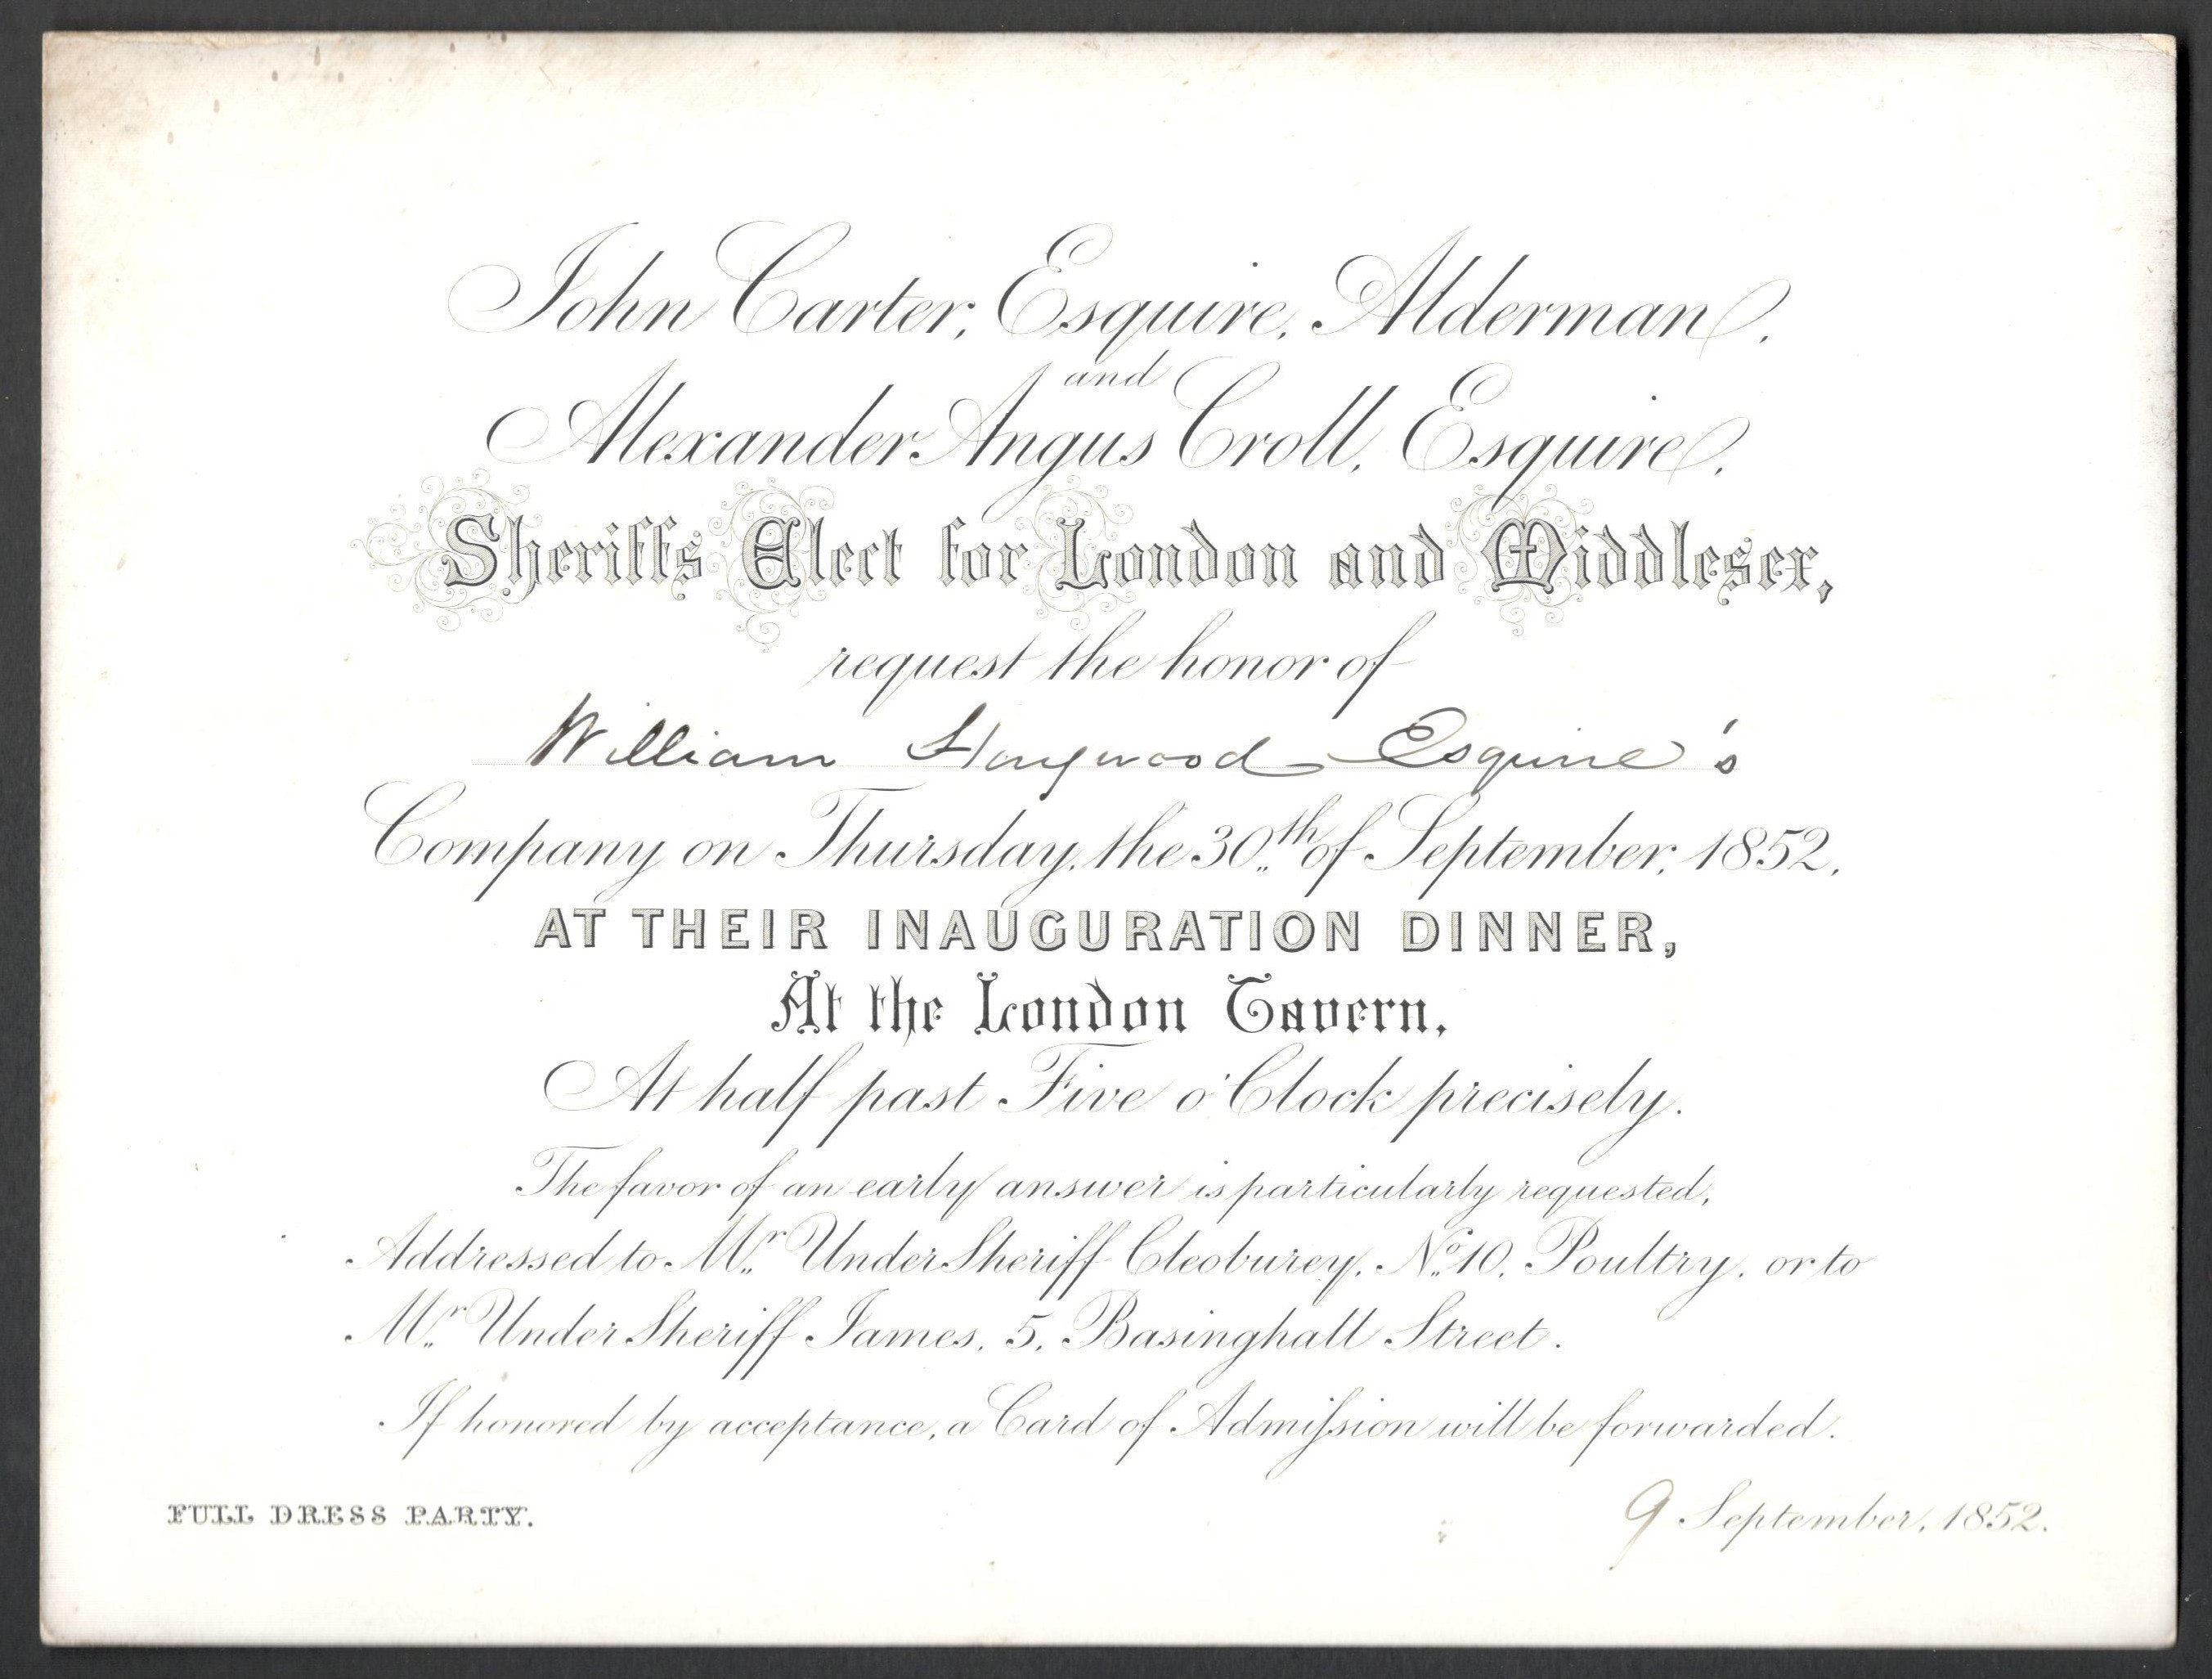 John Carter, Esquire, Alderman,
and
Alexander Angus Croll, Esquire,
Sheriffs Elect for London and Middlesex,
request the honor of
William Haywood Esquire's
Company on Thursday, the 30th of September, 1852,
AT THEIR INAUGURATION DINNER,
At the London Tavern,
At half past Five o'Clock precisely.
The favor of an early answer is particularly requested,
Addressed to Mr. Under Sheriff Cleoburey, No. 10, Poultry, or to
Mr. Under Sheriff James, 5, Basinghall Street.
If honored by acceptance, a Card of Admiſsion will be forwarded.
FULL DRESS PARTY.
9 September, 1852.